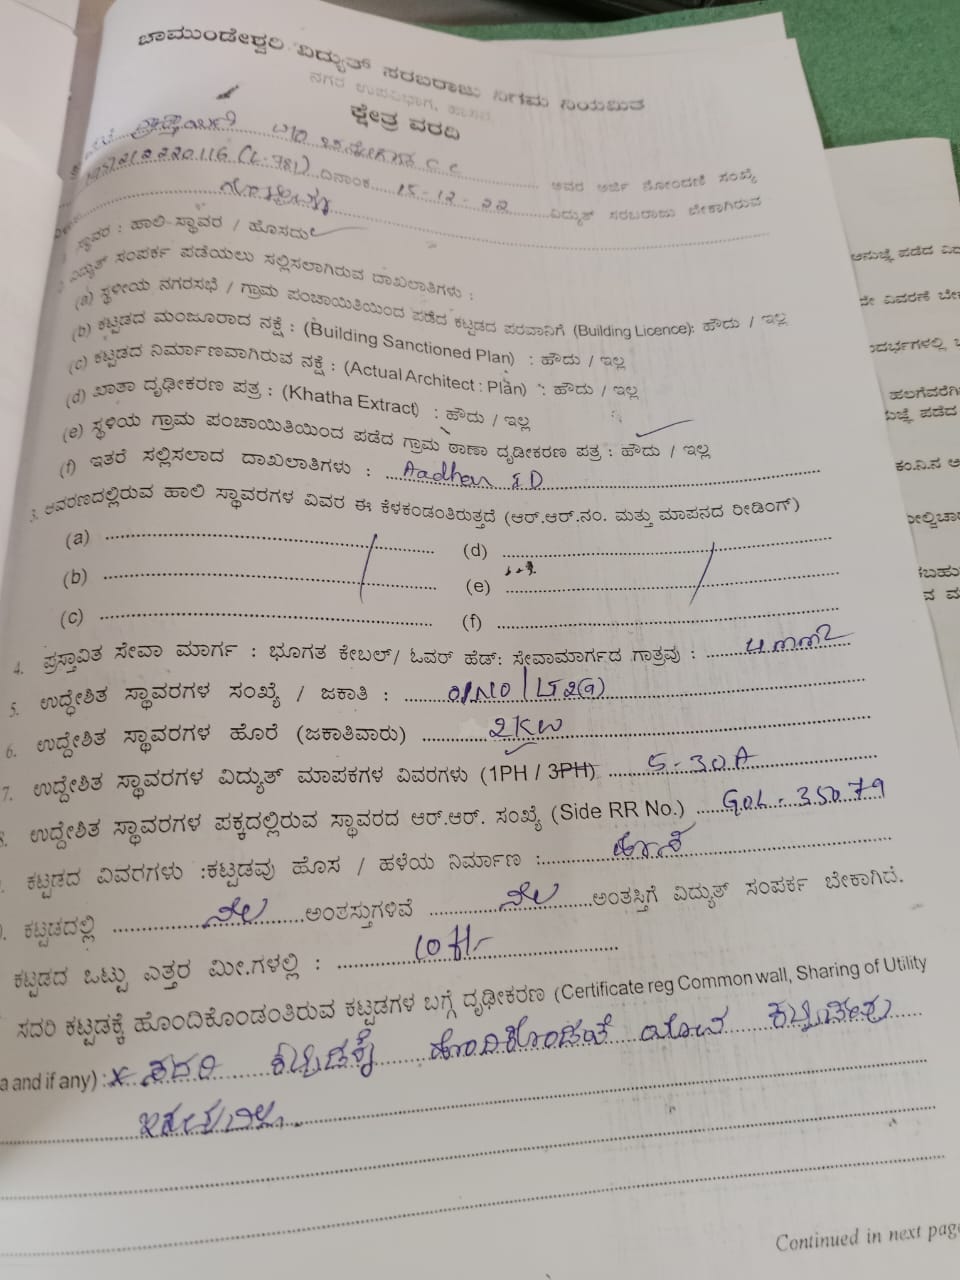 ಚಾಮುಂಡೇಶ್ವರಿ ವಿದ್ಯುತ್ ಸರಬರಾಜು ನಿಗಮ ನಿಯಮಿತ
ನಗರ ಉಪವಿಭಾಗ,
ಕ್ಷೇತ್ರ ವರದಿ
ಅವರ ಅರ್ಜಿ ನೋಂದಣಿ ಸಂಖ್ಯೆ
ದಿನಾಂಕ 15-12-22 ವಿದ್ಯುತ್ ಸರಬರಾಜು ಬೇಕಾಗಿರುವ
ಸ್ಥಾವರ : ಹಾಲಿ ಸ್ಥಾವರ / ಹೊಸದು
ವಿದ್ಯುತ್ ಸಂಪರ್ಕ ಪಡೆಯಲು ಸಲ್ಲಿಸಲಾಗಿರುವ ದಾಖಲಾತಿಗಳು :
(a) ಸ್ಥಳೀಯ ನಗರಸಭೆ / ಗ್ರಾಮ ಪಂಚಾಯಿತಿಯಿಂದ ಪಡೆದ ಕಟ್ಟಡದ ಪರವಾನಿಗೆ (Building Licence): ಹೌದು / ಇಲ್ಲ
(b) ಕಟ್ಟಡದ ಮಂಜೂರಾದ ನಕ್ಷೆ : (Building Sanctioned Plan) : ಹೌದು / ಇಲ್ಲ
(c) ಕಟ್ಟಡದ ನಿರ್ಮಾಣವಾಗಿರುವ ನಕ್ಷೆ : (Actual Architect : Plan) : ಹೌದು / ಇಲ್ಲ
(d) ಖಾತಾ ದೃಢೀಕರಣ ಪತ್ರ : (Khatha Extract) : ಹೌದು / ಇಲ್ಲ
(e) ಸ್ಥಳಿಯ ಗ್ರಾಮ ಪಂಚಾಯಿತಿಯಿಂದ ಪಡೆದ ಗ್ರಾಮ ಠಾಣಾ ದೃಡೀಕರಣ ಪತ್ರ : ಹೌದು / ಇಲ್ಲ
(f) ಇತರೆ ಸಲ್ಲಿಸಲಾದ ದಾಖಲಾತಿಗಳು : Aadhar ID
3. ಆವರಣದಲ್ಲಿರುವ ಹಾಲಿ ಸ್ಥಾವರಗಳ ವಿವರ ಈ ಕೆಳಕಂಡಂತಿರುತ್ತದೆ (ಆರ್.ಆರ್.ನಂ. ಮತ್ತು ಮಾಪನದ ರೀಡಿಂಗ್)
(a) (d)
(b) (e)
(c) (f)
4. ಪ್ರಸ್ತಾವಿತ ಸೇವಾ ಮಾರ್ಗ : ಭೂಗತ ಕೇಬಲ್/ ಓವರ್ ಹೆಡ್: ಸೇವಾಮಾರ್ಗದ ಗಾತ್ರವು : 4mm2
5. ಉದ್ಧೇಶಿತ ಸ್ಥಾವರಗಳ ಸಂಖ್ಯೆ / ಜಕಾತಿ : 01No / LT2(a)
6. ಉದ್ದೇಶಿತ ಸ್ಥಾವರಗಳ ಹೊರೆ (ಜಕಾತಿವಾರು) 2KW
7. ಉದ್ದೇಶಿತ ಸ್ಥಾವರಗಳ ವಿದ್ಯುತ್ ಮಾಪಕಗಳ ವಿವರಗಳು (1PH / 3PH) 5-30A
8. ಉದ್ದೇಶಿತ ಸ್ಥಾವರಗಳ ಪಕ್ಕದಲ್ಲಿರುವ ಸ್ಥಾವರದ ಆರ್.ಆರ್. ಸಂಖ್ಯೆ (Side RR No.) GOL-35079
ಕಟ್ಟಡದ ವಿವರಗಳು :ಕಟ್ಟಡವು ಹೊಸ / ಹಳೆಯ ನಿರ್ಮಾಣ :
ಕಟ್ಟಡದಲ್ಲಿ ನೆಲ ಅಂತಸ್ತುಗಳಿವೆ ನೆಲ ಅಂತಸ್ತಿಗೆ ವಿದ್ಯುತ್ ಸಂಪರ್ಕ ಬೇಕಾಗಿದೆ.
ಕಟ್ಟಡದ ಒಟ್ಟು ಎತ್ತರ ಮೀ.ಗಳಲ್ಲಿ : 10ft-
ಸದರಿ ಕಟ್ಟಡಕ್ಕೆ ಹೊಂದಿಕೊಂಡಂತಿರುವ ಕಟ್ಟಡಗಳ ಬಗ್ಗೆ ದೃಢೀಕರಣ (Certificate reg Common wall, Sharing of Utility
a and if any) : ಸದರಿ ಕಟ್ಟಡಕ್ಕೆ ಹೊಂದಿಕೊಂಡಂತೆ ಯಾವ ಕಟ್ಟಡಗಳು
ಇರುವುದಿಲ್ಲ.
Continued in next page